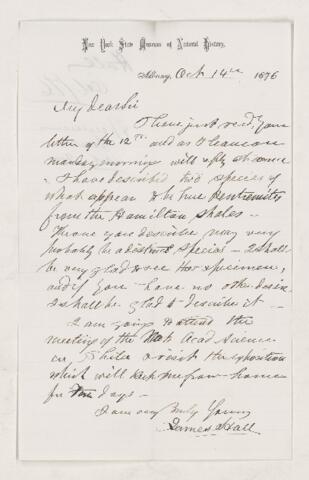 New York State Museum of Natural History,
Albany, Oct 14th 1876
My dear Sir
I have just recd. your
letter of the 12th. and as I leave on
monday morning will reply at once
I have described two species of
what appear to be true Pentremites
from the Hamilton shales -
The one you describe may very
probably be a distinct species - I shall
be very glad to see the specimen,
and if you have no other desire
I shall be glad to describe it -
I am going to attend the
meeting of the Nat. Acad Science
in Phila & visit the exposition
which will keep me from home
for ten days -
I am very truly Yours
James Hall